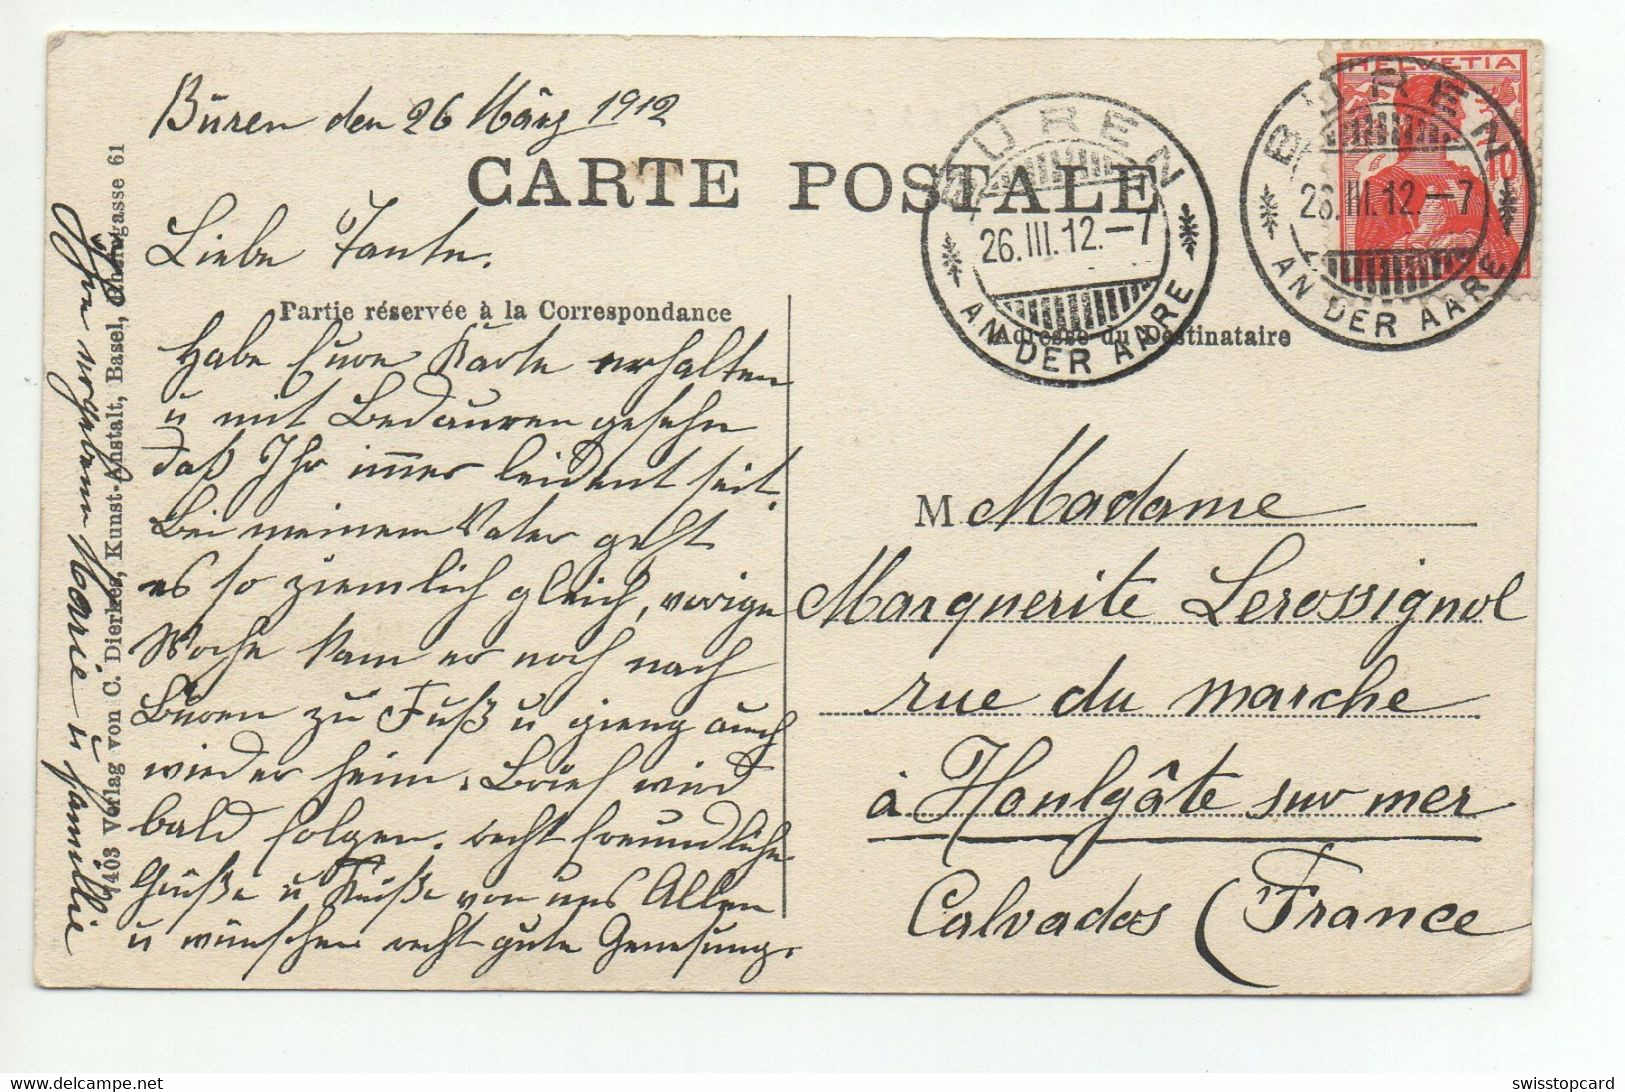 Büren den 26 März 1912
CARTE POSTALE
Liebe Tante.
Partie réservée à la Correspondance
Habe Eure Karte erhalten
u mit Bedauren gesehn
daß Ihr immer leident seit.
Bei meinem Vater geht
es so ziemlich gleich, vorige
Woche kam er noch nach
Büren zu Fuß u gieng auch
wieder heim. Brief wird
bald folgen. recht freundliche
Grüße u Küße von uns Allen
u wünschen recht gute Genesung.
Marie u familie
7403 Verlag von C. Dierkes, Kunst-Anstalt, Basel, 61
HELVETIA
10
BUREN
26.III.12.-7
AN DER AARE
BUREN
26.III.12.-7
AN DER AARE
Adresse du Destinataire
M Madame
Marguerite Lerossignol
rue du marche
à Houlgâte sur mer
Calvados (France
swisstopcard.delcampe.net
swisstopcard